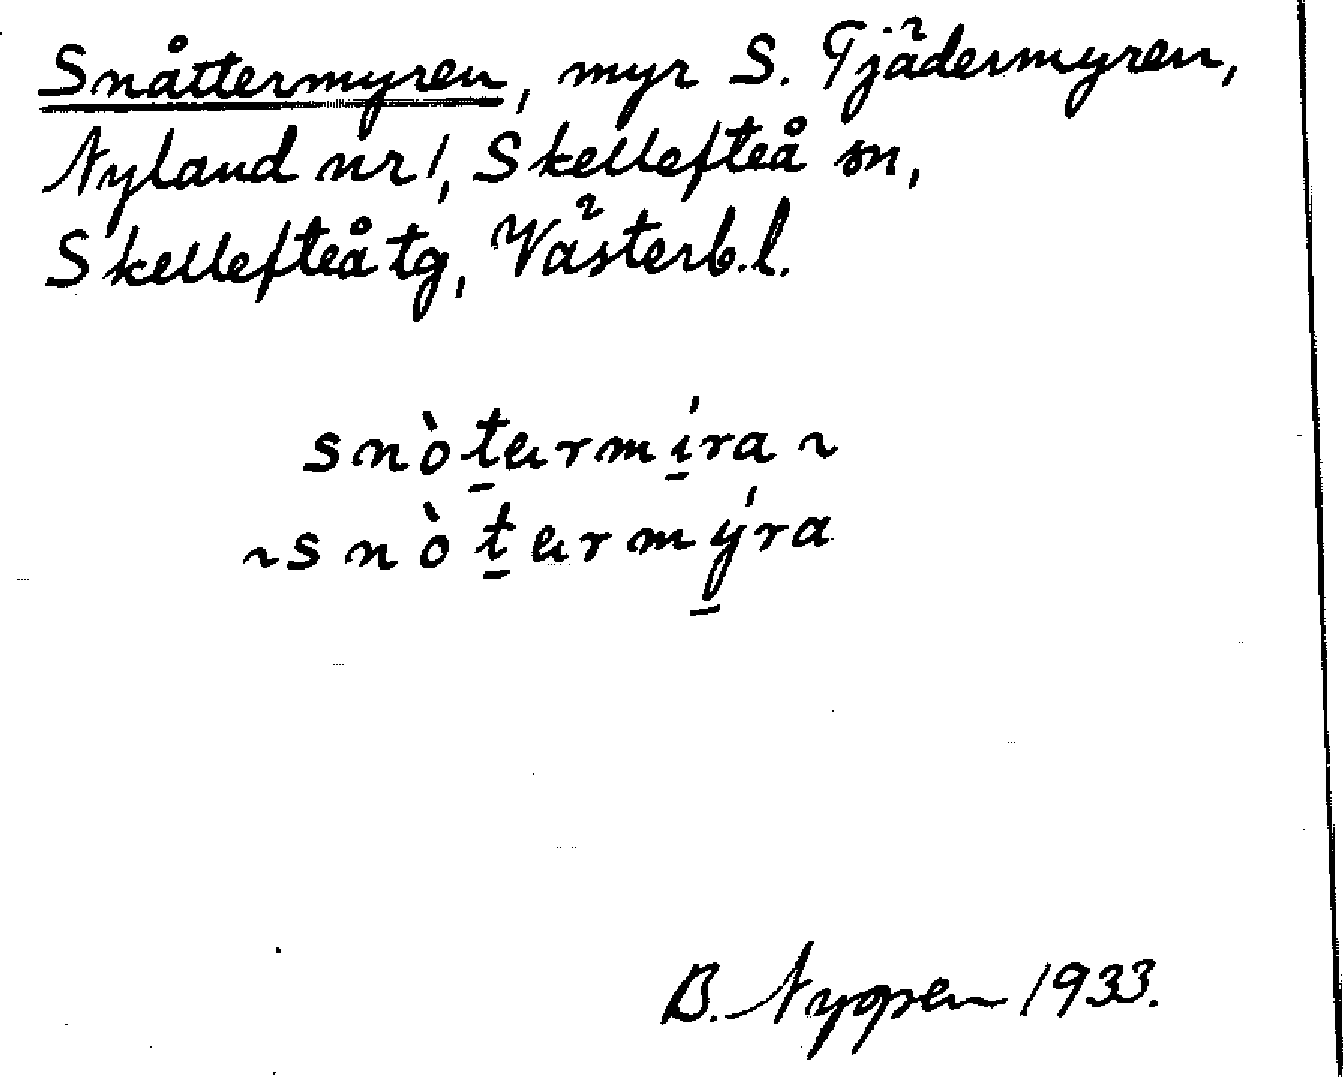 Snåttermyren, myr S. Tjädermyren,
Nyland nr 1, Skellefteå sn,
Skellefteå tg, Västerb.l.
snòtermíra ~
~snòtermýra
1933.